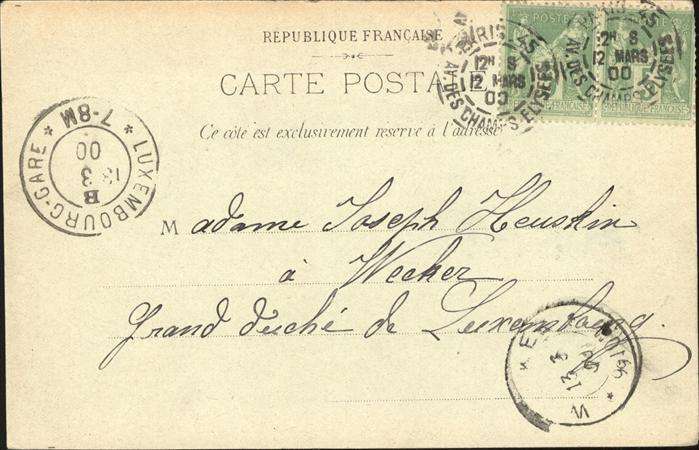 RÉPUBLIQUE FRANÇAISE
CARTE POSTA
Ce côté est exclusivement réservé à l'adresse
PARIS 45
12H S
12 MARS
00
AV. DES CHAMPS ELYSEES
45
12H S
12 MARS
00
AV. DES CHAMP LYSEES
POSTE
LUXEMBOURG-GARE
7-8M
13 3
00
B
Madame Joseph Heuskin
à Wecker
Grand duché de Luxembourg.
WE
13 3